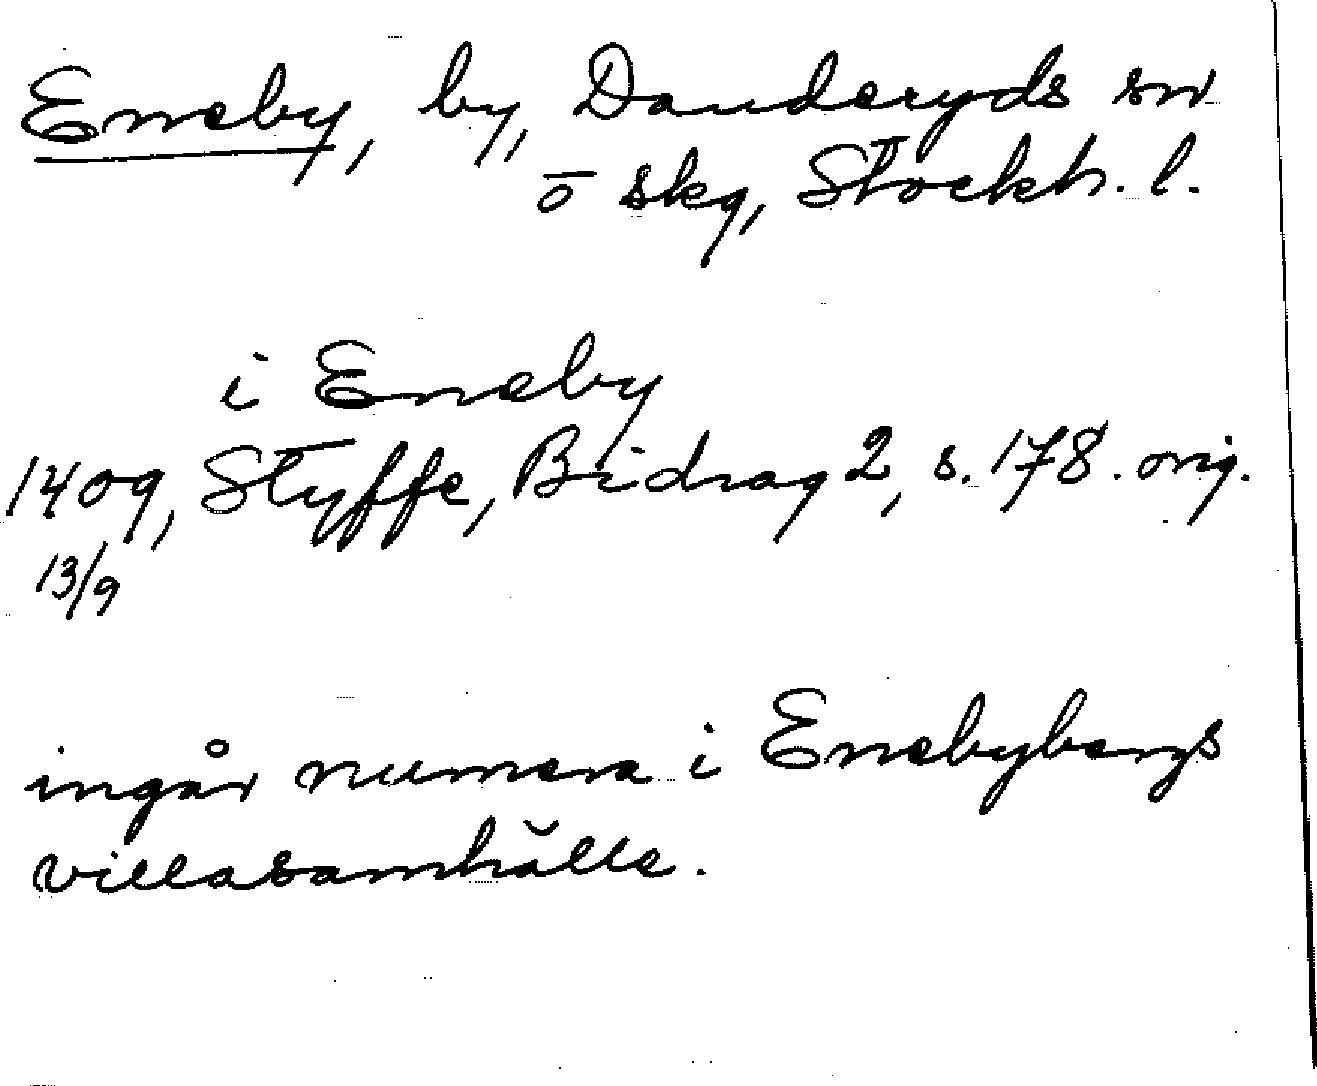 Eneby, by, Danderyds sn
ö skg, Stockh. l.
i Eneby
1409, Styffe, Bidrag 2, s. 178. orig.
13/9
ingår numera i Enebybergs
villasamhälle.